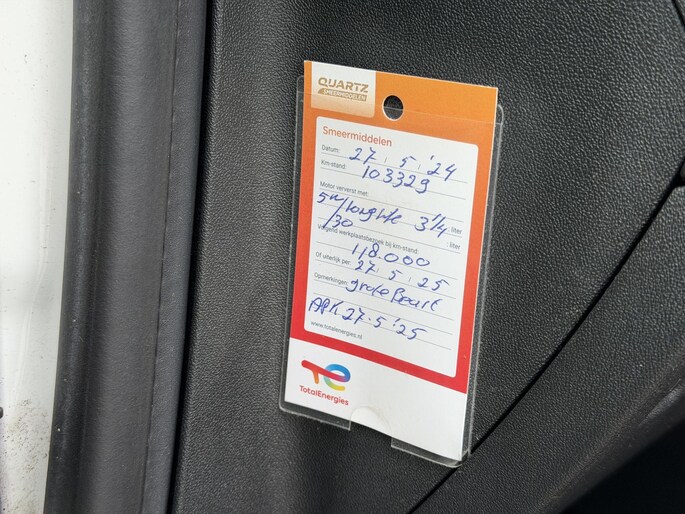 QUARTZ
SMEERMIDDELEN
Smeermiddelen
Datum: 27 : 5 : '24
Km-stand: 103329
Motor ververst met:
5w/longlife 3 1/4 : liter
/30 : liter
Volgend werkplaatsbezoek bij km-stand:
118.000
Of uiterlijk per: 27 : 5 : 25
Opmerkingen: grote Beurt
APK 27-5'25
www.totalenergies.nl
TotalEnergies